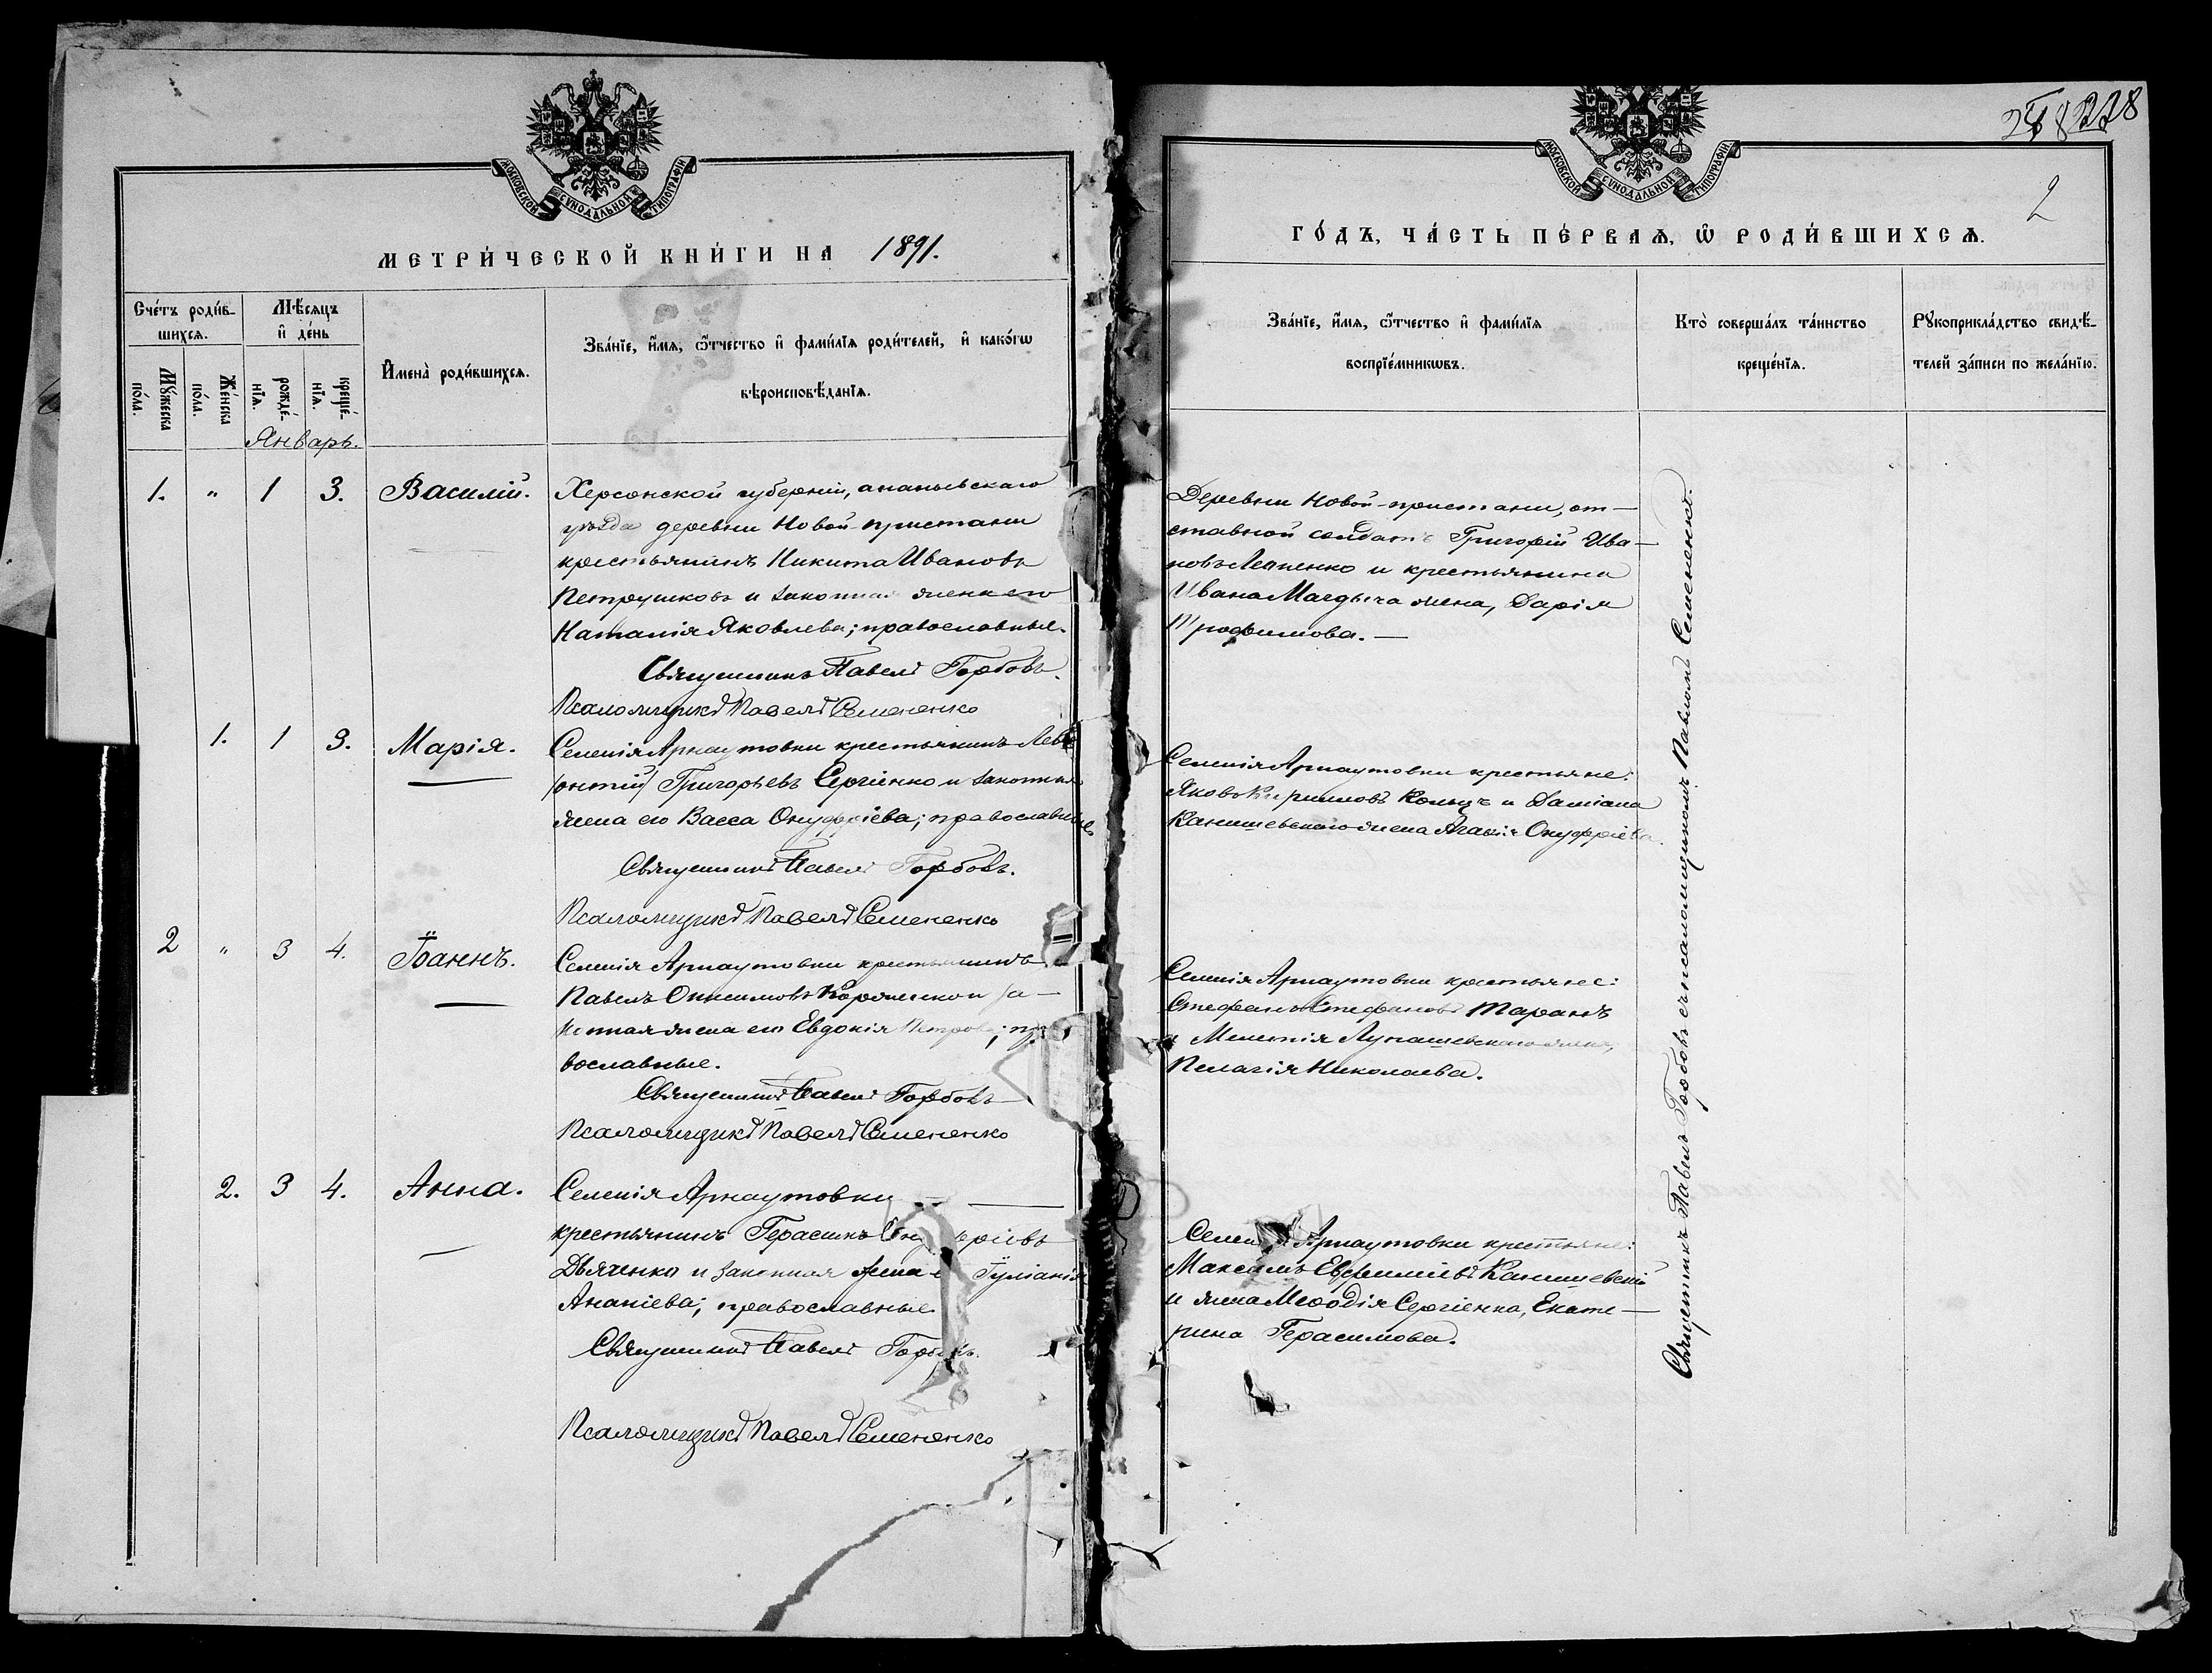 МОСКОВСКОЙ СѴНОДАЛЬНОЙ ТИПОГРАФІИ
МЕТРИ́ЧЕСКОЙ КНИ́ГИ НА 1891.
Сче́тъ роди́в-
шихсѧ.
Мꙋ́жеска по́ла.
Же́нска по́ла.
Мѣ́сѧцъ
и҆ де́нь
рожде́-нїѧ.
креще́-нїѧ.
И҆мена̀ роди́вшихсѧ.
Зва́нїе, и҆́мѧ, ѻ҆́тчество и҆ фами́лїѧ роди́телей, и҆ како́гѡ
вѣроисповѣ́данїѧ.
Январь.
1. " 1 3. Василій.
Херсонской губерніи, ананьевскаго
уѣзда деревни Новой-пристани
крестьянинъ Никита Ивановъ
Петрушковъ и законная жена его
Наталія Яковлева; православные.
Священникъ Павелъ Горбовъ.
Псаломщикъ Павелъ Семененко
1. 1 3. Марія.
Селенія Арнаутовки крестьянинъ Лев
/онтій/ Григорьевъ Сергіенко и законная
жена его Васса Онуфріева; православные
Священникъ Павелъ Горбовъ.
Псаломщикъ Павелъ Семененко
2 " 3 4. Іоаннъ.
Селенія Арнаутовки крестьянинъ
Павелъ Онисимовъ и за-
конная жена его Евдокія Петрова; пра
вославные.
Священникъ Павелъ Горбовъ
Псаломщикъ Павелъ Семененко
2. 3 4. Анна.
Селенія Арнаутовки
крестьянинъ Герасимъ
Дьяченко и законная жена Іуліанія
Ананіева; православные.
Священникъ Павелъ Горбовъ.
Псаломщикъ Павелъ Семененко
228
2
МОСКОВСКОЙ СѴНОДАЛЬНОЙ ТИПОГРАФІИ
ГО́ДЪ, ЧА́СТЬ ПЕ́РВАѦ, Ѡ҆ РОДИ́ВШИХСѦ.
Зва́нїе, и҆́мѧ, ѻ҆́тчество и҆ фами́лїѧ
воспрїе́мникѡвъ.
Кто̀ соверша́лъ та́инство
креще́нїѧ.
Рꙋкоприкла́дство свидѣ́-
телей за́писи по жела́нїю.
Деревни Новой-пристани, от-
ставной солдатъ Григорій Ива-
новъ Лепенко и крестьянина
Ивана жена, Дарія
Трофимова.
Селенія Арнаутовки крестьяне:
Яковъ Кирилловъ и Даміана
Канишевскаго жена Агафія Онуфріева.
Селенія Арнаутовки крестьяне:
Стефанъ Стефановъ Таранъ
и Мелетія Лупашевскаго жена,
Пелагія Николаева.
Селенія Арнаутовки крестьяне:
Максимъ Евфиміевъ Канишевскій
и жена Меѳодія Сергіенко, Екате-
рина Герасимова.
Священникъ Павелъ Горбовъ съ псаломщикомъ Павломъ Семененко.